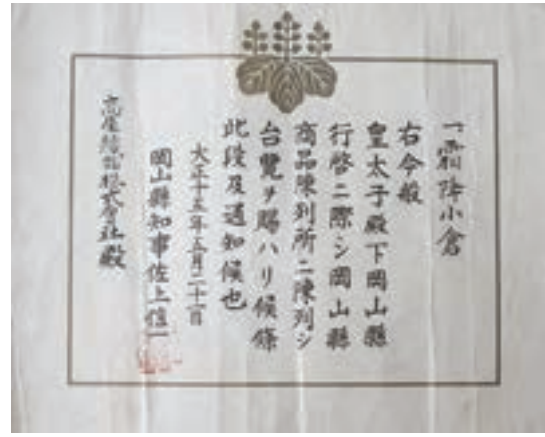 一霜降小倉
右今般
皇太子殿下岡山縣
行啓ニ際シ岡山縣
商品陳列所ニ陳列シ
台覽ヲ賜ハリ候條
此段及通知候也
大正十五年五月二十一日
岡山縣知事佐上信一
織物株式會社殿